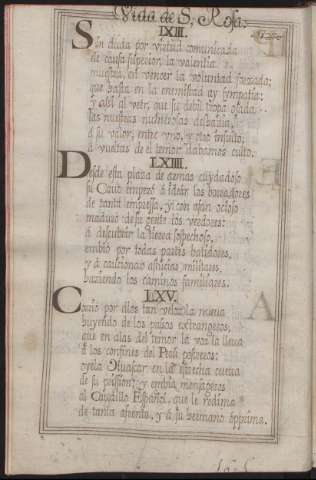 Vida de S. Rosa.
LXIII.
Sin duda por virtud comunicada
de causa superior, la valentia
muestra, en vencer la voluntad forzada;
que hasta en la enemistad ay sympathia;
y assi al ver, que su debil tropa osada
las nuestras numerosas desbadia,
a su valor, entre uno, y otro insulto,
a vueltas de el temor dabamos culto.
LXIIII.
Desde esta plaza de armas cuydadoso
su Cavo empezó a idear los borradores
de tanta empressa, y con afan ocioso
maduró de su gente los verdores:
a descubrir la tierra sospechoso,
embió por todas partes batidores,
y a cautionar astucias militares,
haziendo los caminos familiares.
LXV.
Corrió por ellos tan veloz la nueva
huyendo de los passos extrangeros,
que en alas del temor la voz la lleva
a los confines del Perú postreros:
oyela Huascar en la estrecha cueva
de su prission; y embia mensageros
al Caudillo Español, que le redima
de tanta afrenta, y a su hermano opprima.